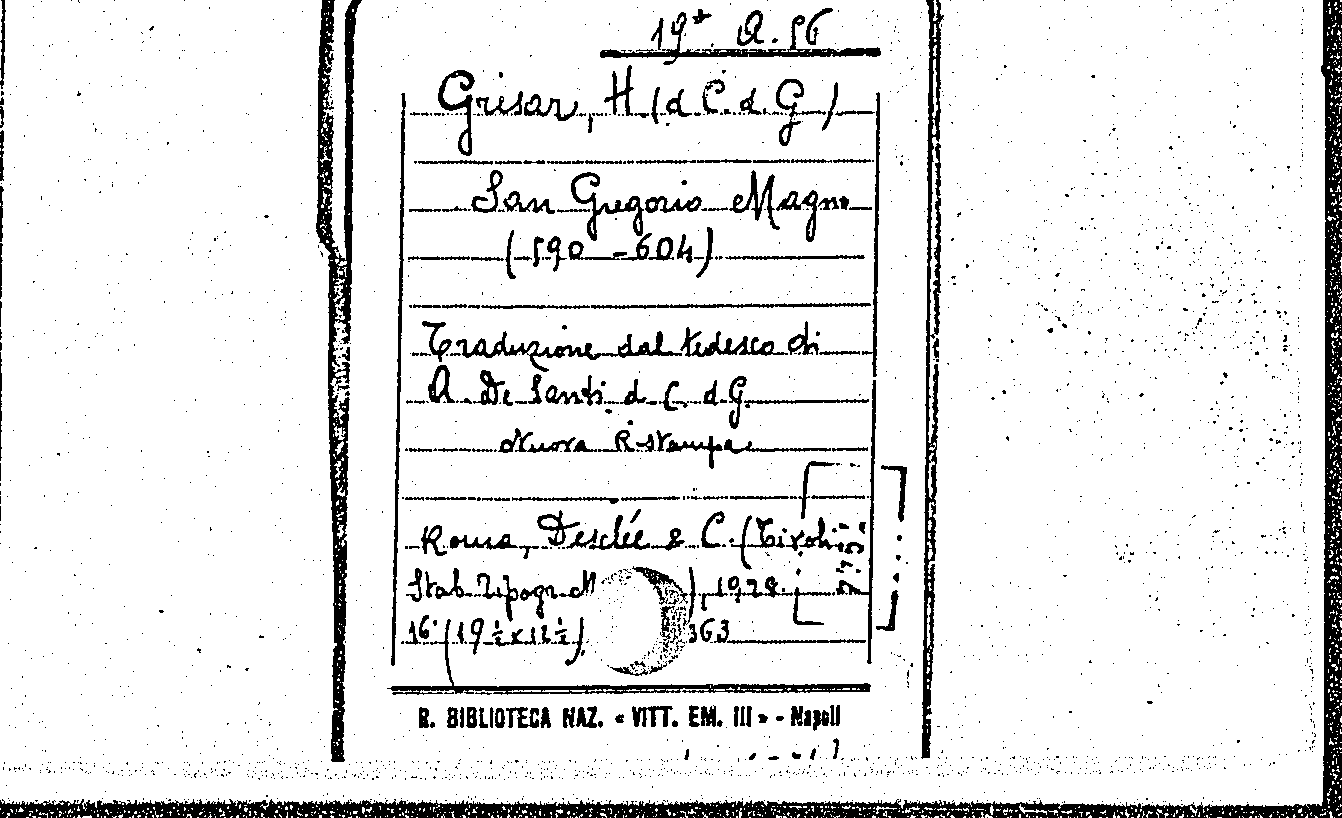 19* A. 56
Grisar, H. (d. C. d. G.)
San Gregorio Magno
(590 - 604)
Traduzione dal tedesco di
A. De Santi d. C. d. G.
Nuova Ristampa
Roma, Desclée & C. (Tivoli,
Stab. Tipogr. M ), 1928.
16° (19 ½ x 12 ½) 363
R. BIBLIOTECA NAZ. « VITT. EM. III » - Napoli